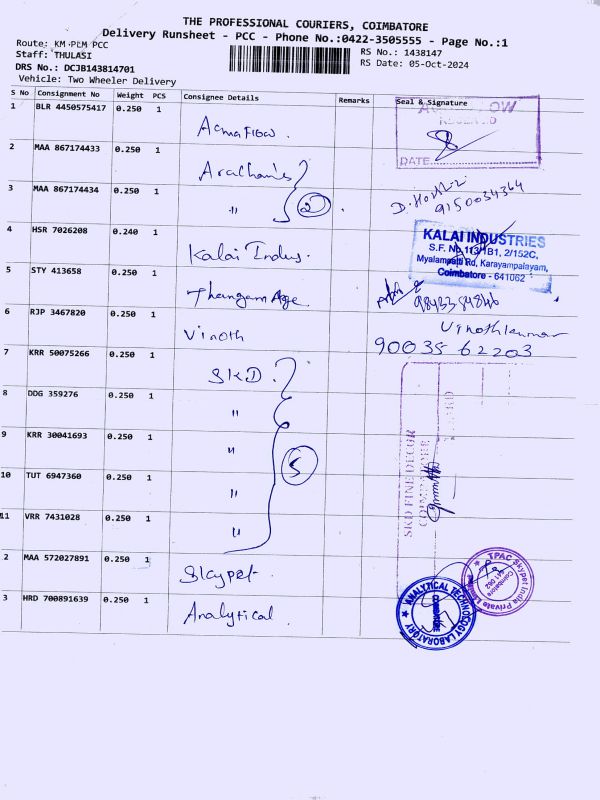 THE PROFESSIONAL COURIERS, COIMBATORE
Delivery Runsheet - PCC - Phone No.:0422-3505555 - Page No.:1
Route: KM PLM PCC
Staff: THULASI
DRS No.: DCJB143814701
Vehicle: Two Wheeler Delivery
RS No.: 1438147
RS Date: 05-Oct-2024
S No Consignment No Weight PCS Consignee Details Remarks Seal & Signature
1 BLR 4450575417 0.250 1 Acmaflow.
DATE
2 MAA 867174433 0.250 1
3 MAA 867174434 0.250 1 " 2 9150034364
4 HSR 7026208 0.240 1 Kalai Indus.
KALAI INDUSTRIES
S.F. No.113/1B1, 2/152C,
Myalampatti Rd, Karayampalayam,
Coimbatore - 641062
5 STY 413658 0.250 1 Thangam Age.
6 RJP 3467820 0.250 1 Vinoth Vinothkumar
90035 62203
7 KRR 50075266 0.250 1 SKD.
8 DDG 359276 0.250 1 "
9 KRR 30041693 0.250 1 " 5
10 TUT 6947360 0.250 1 "
11 VRR 7431028 0.250 1 "
SKD FINE DECOR
COIMBATORE
2 MAA 572027891 0.250 1 Skypet.
TPAC Skypet India Private Limited
Coimbatore
641 062
3 HRD 700891639 0.250 1 Analytical.
ANALYTICAL TECHNOLOGY LABORATORY
COIMBATORE